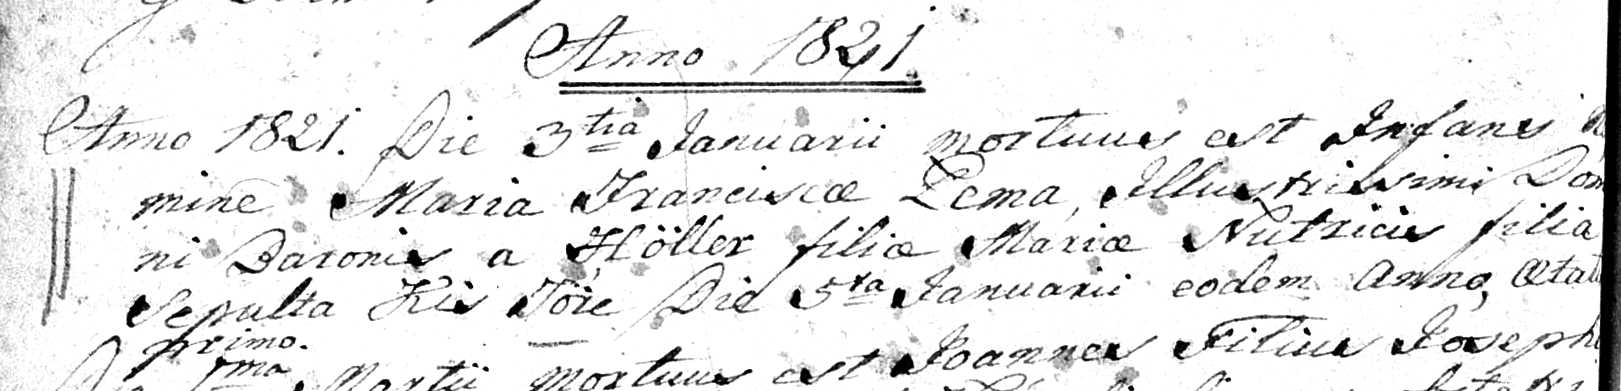 Anno 1821.
Anno 1821. Die 3tia Januarii mortuus est Infans
mine Maria Franciscæ Lema, Illustrissimi Dom
ni Baronis a Höller filiæ Mariæ Nutricis filia
Sepulta Kis Töre Die 5ta Januarii eodem Anno, Ætat
primo.
1ma Martii mortuus est Joannes Filius Josephi